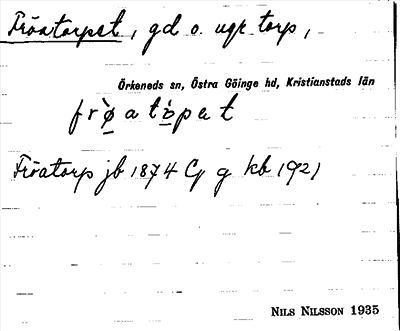 Fröatorpet, gd o. ugr. torp,
Örkeneds sn, Östra Göinge hd, Kristianstads län
frø̀atò̱pet
Fröatorp jb 1874 Cj g kb 1921
NILS NILSSON 1935